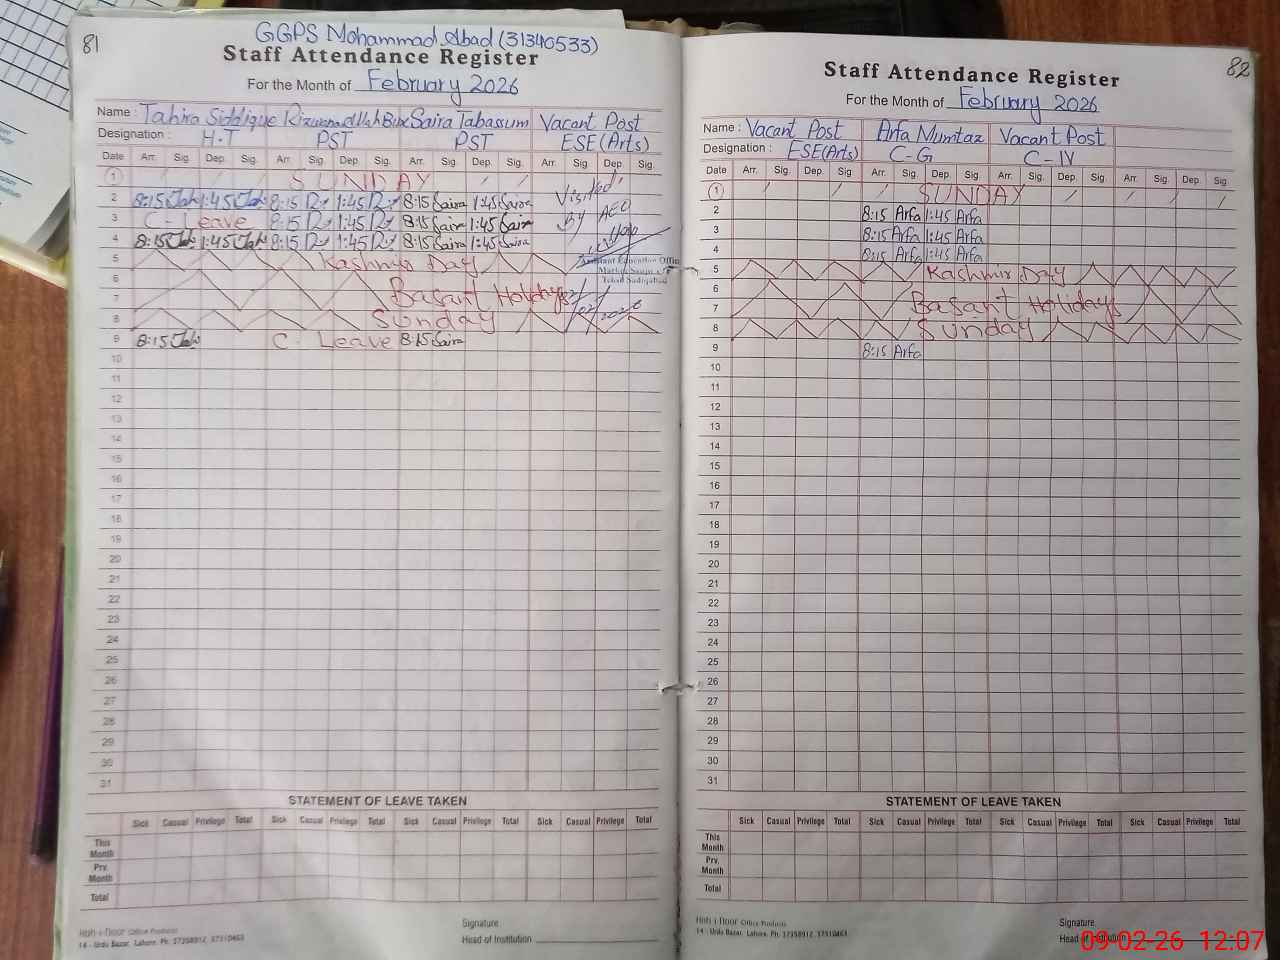 81
GGPS Mohammad Abad (31340533)
Staff Attendance Register
For the Month of February 2026
Name : Tahira Siddique Rizwana Saira Tabassum Vacant Post
Designation : H.T PST PST ESE(Arts)
Date Arr. Sig. Dep. Sig. Arr. Sig. Dep. Sig. Arr. Sig. Dep. Sig. Arr. Sig. Dep. Sig.
1 SUNDAY
2 8:15 1:45 8:15 1:45 8:15 Saira 1:45 Saira Visited
3 C-Leave 8:15 1:45 8:15 Saira 1:45 Saira By AEO
4 8:15 1:45 8:15 1:45 8:15 Saira 1:45 Saira
5 Kashmir Day
Assistant Education Officer
6 Basant Holidays
7
8 Sunday
9 8:15 C-Leave 8:15 Saira
10
11
12
13
14
15
16
17
18
19
20
21
22
23
24
25
26
27
28
29
30
31
STATEMENT OF LEAVE TAKEN
Sick Casual Privilege Total Sick Casual Privilege Total Sick Casual Privilege Total Sick Casual Privilege Total
This Month
Prv. Month
Total
(Office Products)
14 - Urdu Bazar, Lahore. Ph: 37358912, 37310463
Signature
Head of Institution
82
Staff Attendance Register
For the Month of February 2026
Name : Vacant Post Arfa Mumtaz Vacant Post
Designation : ESE(Arts) C-G C-IV
Date Arr. Sig. Dep. Sig. Arr. Sig. Dep. Sig. Arr. Sig. Dep. Sig. Arr. Sig. Dep. Sig.
1 SUNDAY
2 8:15 Arfa 1:45 Arfa
3 8:15 Arfa 1:45 Arfa
4 8:15 Arfa 1:45 Arfa
5 Kashmir Day
6
7 Basant Holidays
8 Sunday
9 8:15 Arfa
10
11
12
13
14
15
16
17
18
19
20
21
22
23
24
25
26
27
28
29
30
31
STATEMENT OF LEAVE TAKEN
Sick Casual Privilege Total Sick Casual Privilege Total Sick Casual Privilege Total Sick Casual Privilege Total
This Month
Prv. Month
Total
(Office Products)
14 - Urdu Bazar, Lahore. Ph: 37358912, 37310463
Signature
Head of
09-02-26 12:07